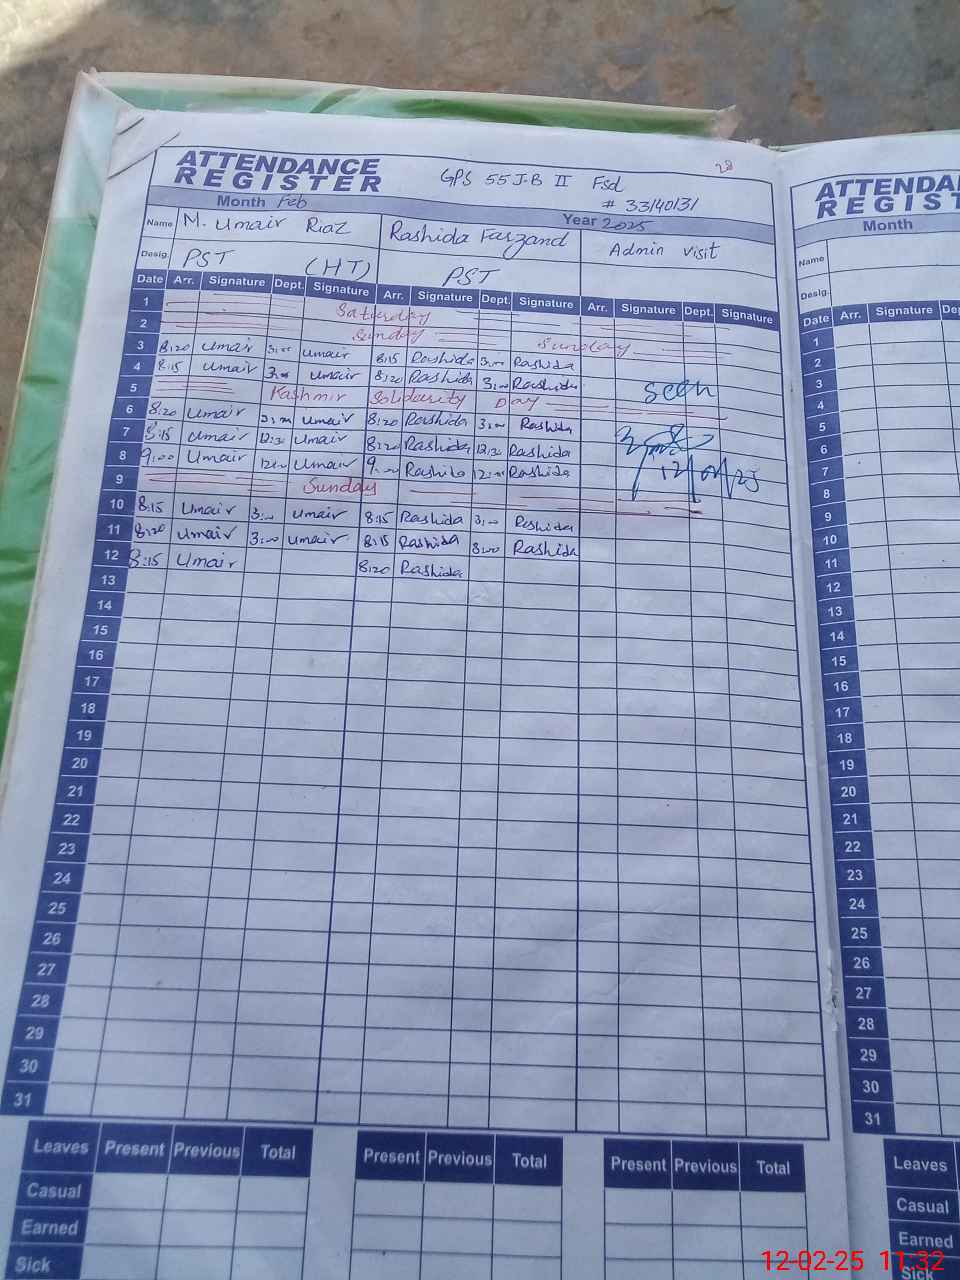 28
ATTENDANCE GPS 55 J.B II Fsd
REGISTER # 33140131
Month Feb Year 2025
Name M. Umair Riaz Rashida Farzand Admin visit
Desig. PST (HT) PST
Date Arr. Signature Dept. Signature Arr. Signature Dept. Signature Arr. Signature Dept. Signature
1 Saturday
2 Sunday Sunday
3 8:20 Umair 3:00 Umair 8:15 Rashida 3:00 Rashida
4 8:15 Umair 3:00 Umair 8:20 Rashida 3:00 Rashida seen
5 Kashmir Solidarity Day
6 8:20 Umair 3:00 Umair 8:20 Rashida 3:00 Rashida
7 8:15 Umair 12:30 Umair 8:20 Rashida 12:30 Rashida
8 9:00 Umair 12:00 Umair 9:00 Rashida 12:00 Rashida 12/02/25
9 Sunday
10 8:15 Umair 3:00 Umair 8:15 Rashida 3:00 Rashida
11 8:20 Umair 3:00 Umair 8:15 Rashida 3:00 Rashida
12 8:15 Umair 8:20 Rashida
13
14
15
16
17
18
19
20
21
22
23
24
25
26
27
28
29
30
31
Leaves Present Previous Total Present Previous Total Present Previous Total
Casual
Earned
Sick
ATTENDA
REGIST
Month
Name
Desig.
Date Arr. Signature Dept.
1
2
3
4
5
6
7
8
9
10
11
12
13
14
15
16
17
18
19
20
21
22
23
24
25
26
27
28
29
30
31
Leaves
Casual
Earned
Sick
12-02-25 11:32